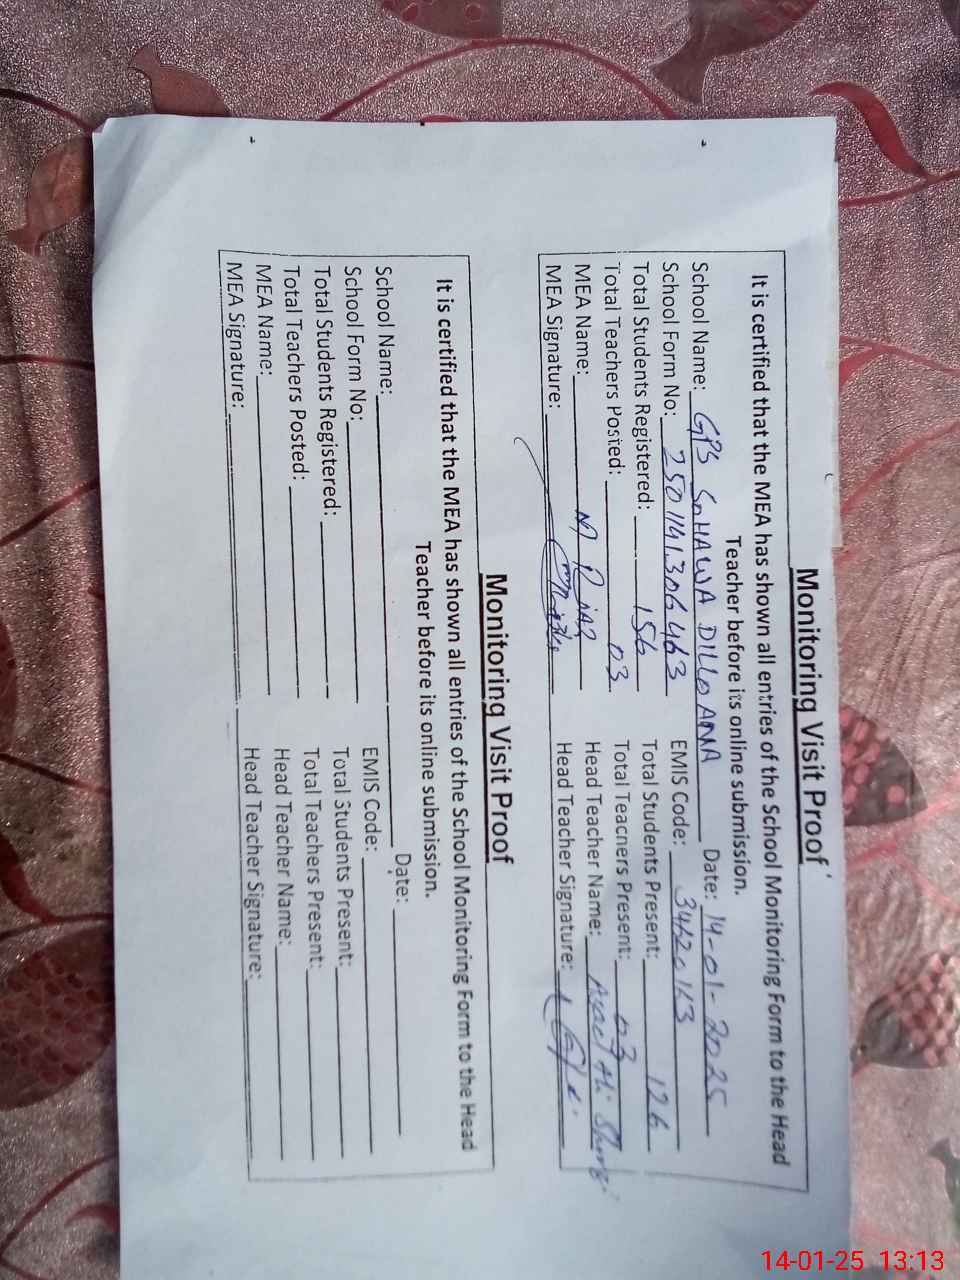 Monitoring Visit Proof
It is certified that the MEA has shown all entries of the School Monitoring Form to the Head
Teacher before its online submission.
School Name: GPS SOHAWA DILLOANA Date: 14-01-2025
School Form No: 2501141306463 EMIS Code: 34620163
Total Students Registered: 156 Total Students Present: 126
Total Teachers Posted: 03 Total Teachers Present: 03
MEA Name: M Riaz Head Teacher Name:
MEA Signature: Head Teacher Signature:
Monitoring Visit Proof
It is certified that the MEA has shown all entries of the School Monitoring Form to the Head
Teacher before its online submission.
School Name: Date:
School Form No: EMIS Code:
Total Students Registered: Total Students Present:
Total Teachers Posted: Total Teachers Present:
MEA Name: Head Teacher Name:
MEA Signature: Head Teacher Signature:
14-01-25 13:13